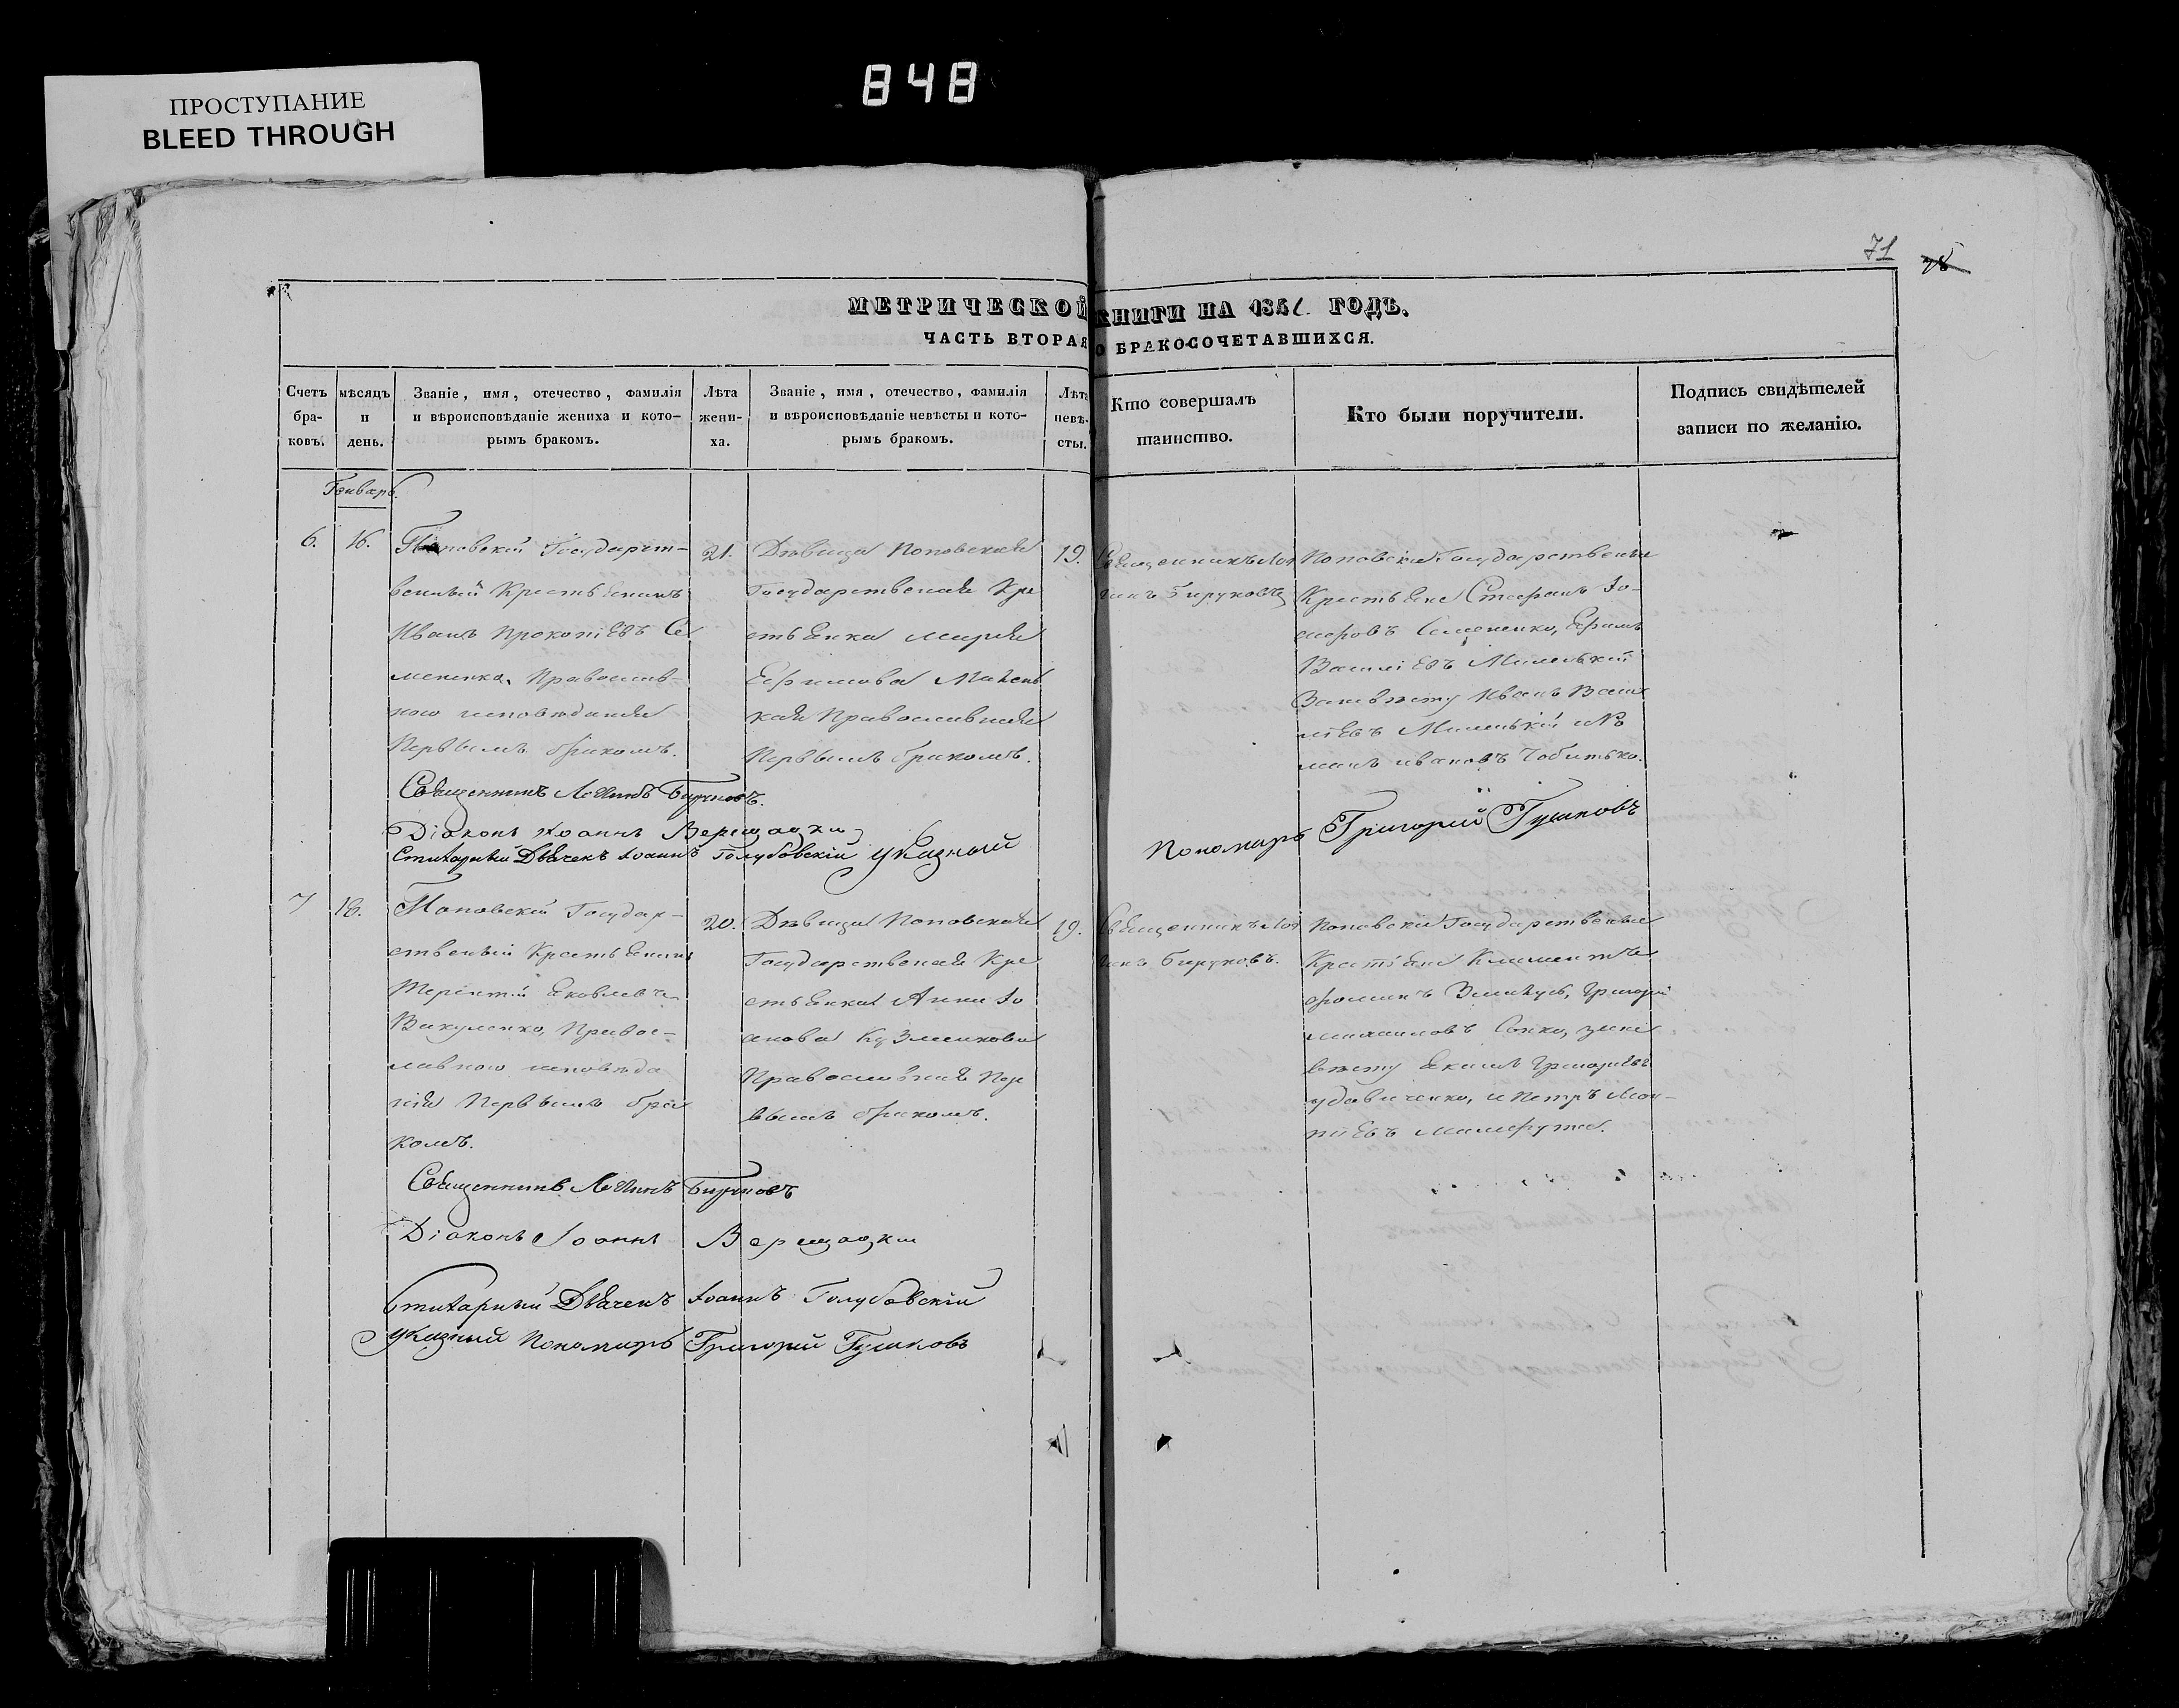 848
ПРОСТУПАНИЕ
BLEED THROUGH
71
МЕТРИЧЕСКОЙ КНИГИ НА 1841 ГОДЪ.
ЧАСТЬ ВТОРАЯ О БРАКОСОЧЕТАВШИХСЯ.
Счетъ бра-ковъ.
мѣсяцъ и день.
Званіе, имя, отечество, фамилія
и вѣроисповѣданіе жениха и кото-
рымъ бракомъ.
Лѣта жени-ха.
Званіе, имя, отечество, фамилія
и вѣроисповѣданіе невѣсты и кото-
рымъ бракомъ.
Лѣта невѣ-сты.
Кто совершалъ
таинство.
Кто были поручители.
Подпись свидѣтелей
записи по желанію.
Генварь.
6.
16.
Поповскій Государст-
венный Крестьянинъ
Иванъ Прокопіевъ Се
мененко, Православ-
ного исповѣданія
Первымъ бракомъ.
21.
Дѣвица Поповская
Государственая Кре
стьянка Марія
Ефимова
Православная
Первымъ бракомъ.
19.
Священникъ Лог
инъ Бируковъ
Поповскіе Государственые
Крестьяне Стефанъ
Семененко, Ефимъ
Василіевъ Миленькій
Заневѣсту Иванъ Васи
ліевъ Миленькій и Ро
манъ Ивановъ Чобитько.
Священникъ Логинъ Бируковъ.
Діаконъ Іоаннъ Верещацкій
Стихарный Дьячекъ Іоаннъ Голубовскій Указный Пономарь Григорій Гушковъ
7
18.
Поповскій Государ-
ственый Крестьянинъ
Терентій Яковлевъ
Викуленко, Правос-
лавного исповѣда
нія Первымъ бра
комъ.
20.
Дѣвица Поповская
Государственая Кре
стьянка Анна Іо
анова Кузменкова
Православная Пер
вымъ бракомъ.
19.
Священникъ Лог
инъ Бируковъ.
Поповскіе Государственые
Крестьяне Климентъ
Григорій
Сопко, зане
вѣсту Якимъ Григоріевъ
Удовиченко, и Петръ
Священникъ Логинъ Бируковъ
Діаконъ Іоаннъ Верещацкій
Стихарный Дьячекъ Іоаннъ Голубовскій
Указный Пономарь Григорій Гушковъ